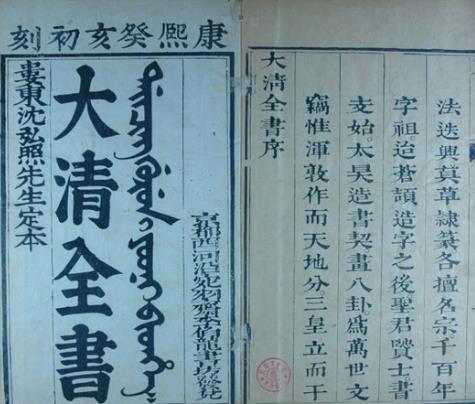 康熙癸亥初刻
婁東沈弘照先生定本
大清全書
ᡩᠠᡳᠴᡳᠩ ᡤᡠᡵᡠᠨ ᡳ ᠶᠣᠣᠨᡳ ᠪᡳᡨᡥᡝ
京都西河沿宛羽齋李伯龍書坊發兌
大清全書序
竊惟渾敦作而天地分三皇立而干
支始太昊造書契畫八卦爲萬世文
字祖迨蒼頡造字之後聖君賢士書
法迭興真草隸篆各擅名宗千百年